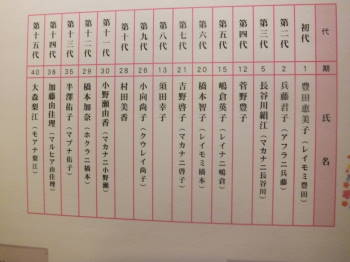 代 期 氏名
初代 1 豊田恵美子（レイモミ豊田）
第二代 2 兵藤君子（アフラニ兵藤）
第三代 5 長谷川絹江（マカナニ長谷川）
第四代 12 菅野豊子
第五代 15 嶋倉英子（レイナニ嶋倉）
第六代 20 橋本智子（レイモミ橋本）
第七代 21 吉野啓子（マカナニ啓子）
第八代 13 須田幸子
第九代 26 小向尚子（クウレイ尚子）
第十代 28 村田美香
第十一代 30 小野瀬由香（マカナニ小野瀬）
第十二代 29 橋本加奈（ホクラニ橋本）
第十三代 35 半澤佑子（マプナ佑子）
第十四代 36 加藤由佳理（マルヒア由佳理）
第十五代 40 大森梨江（モアナ梨江）